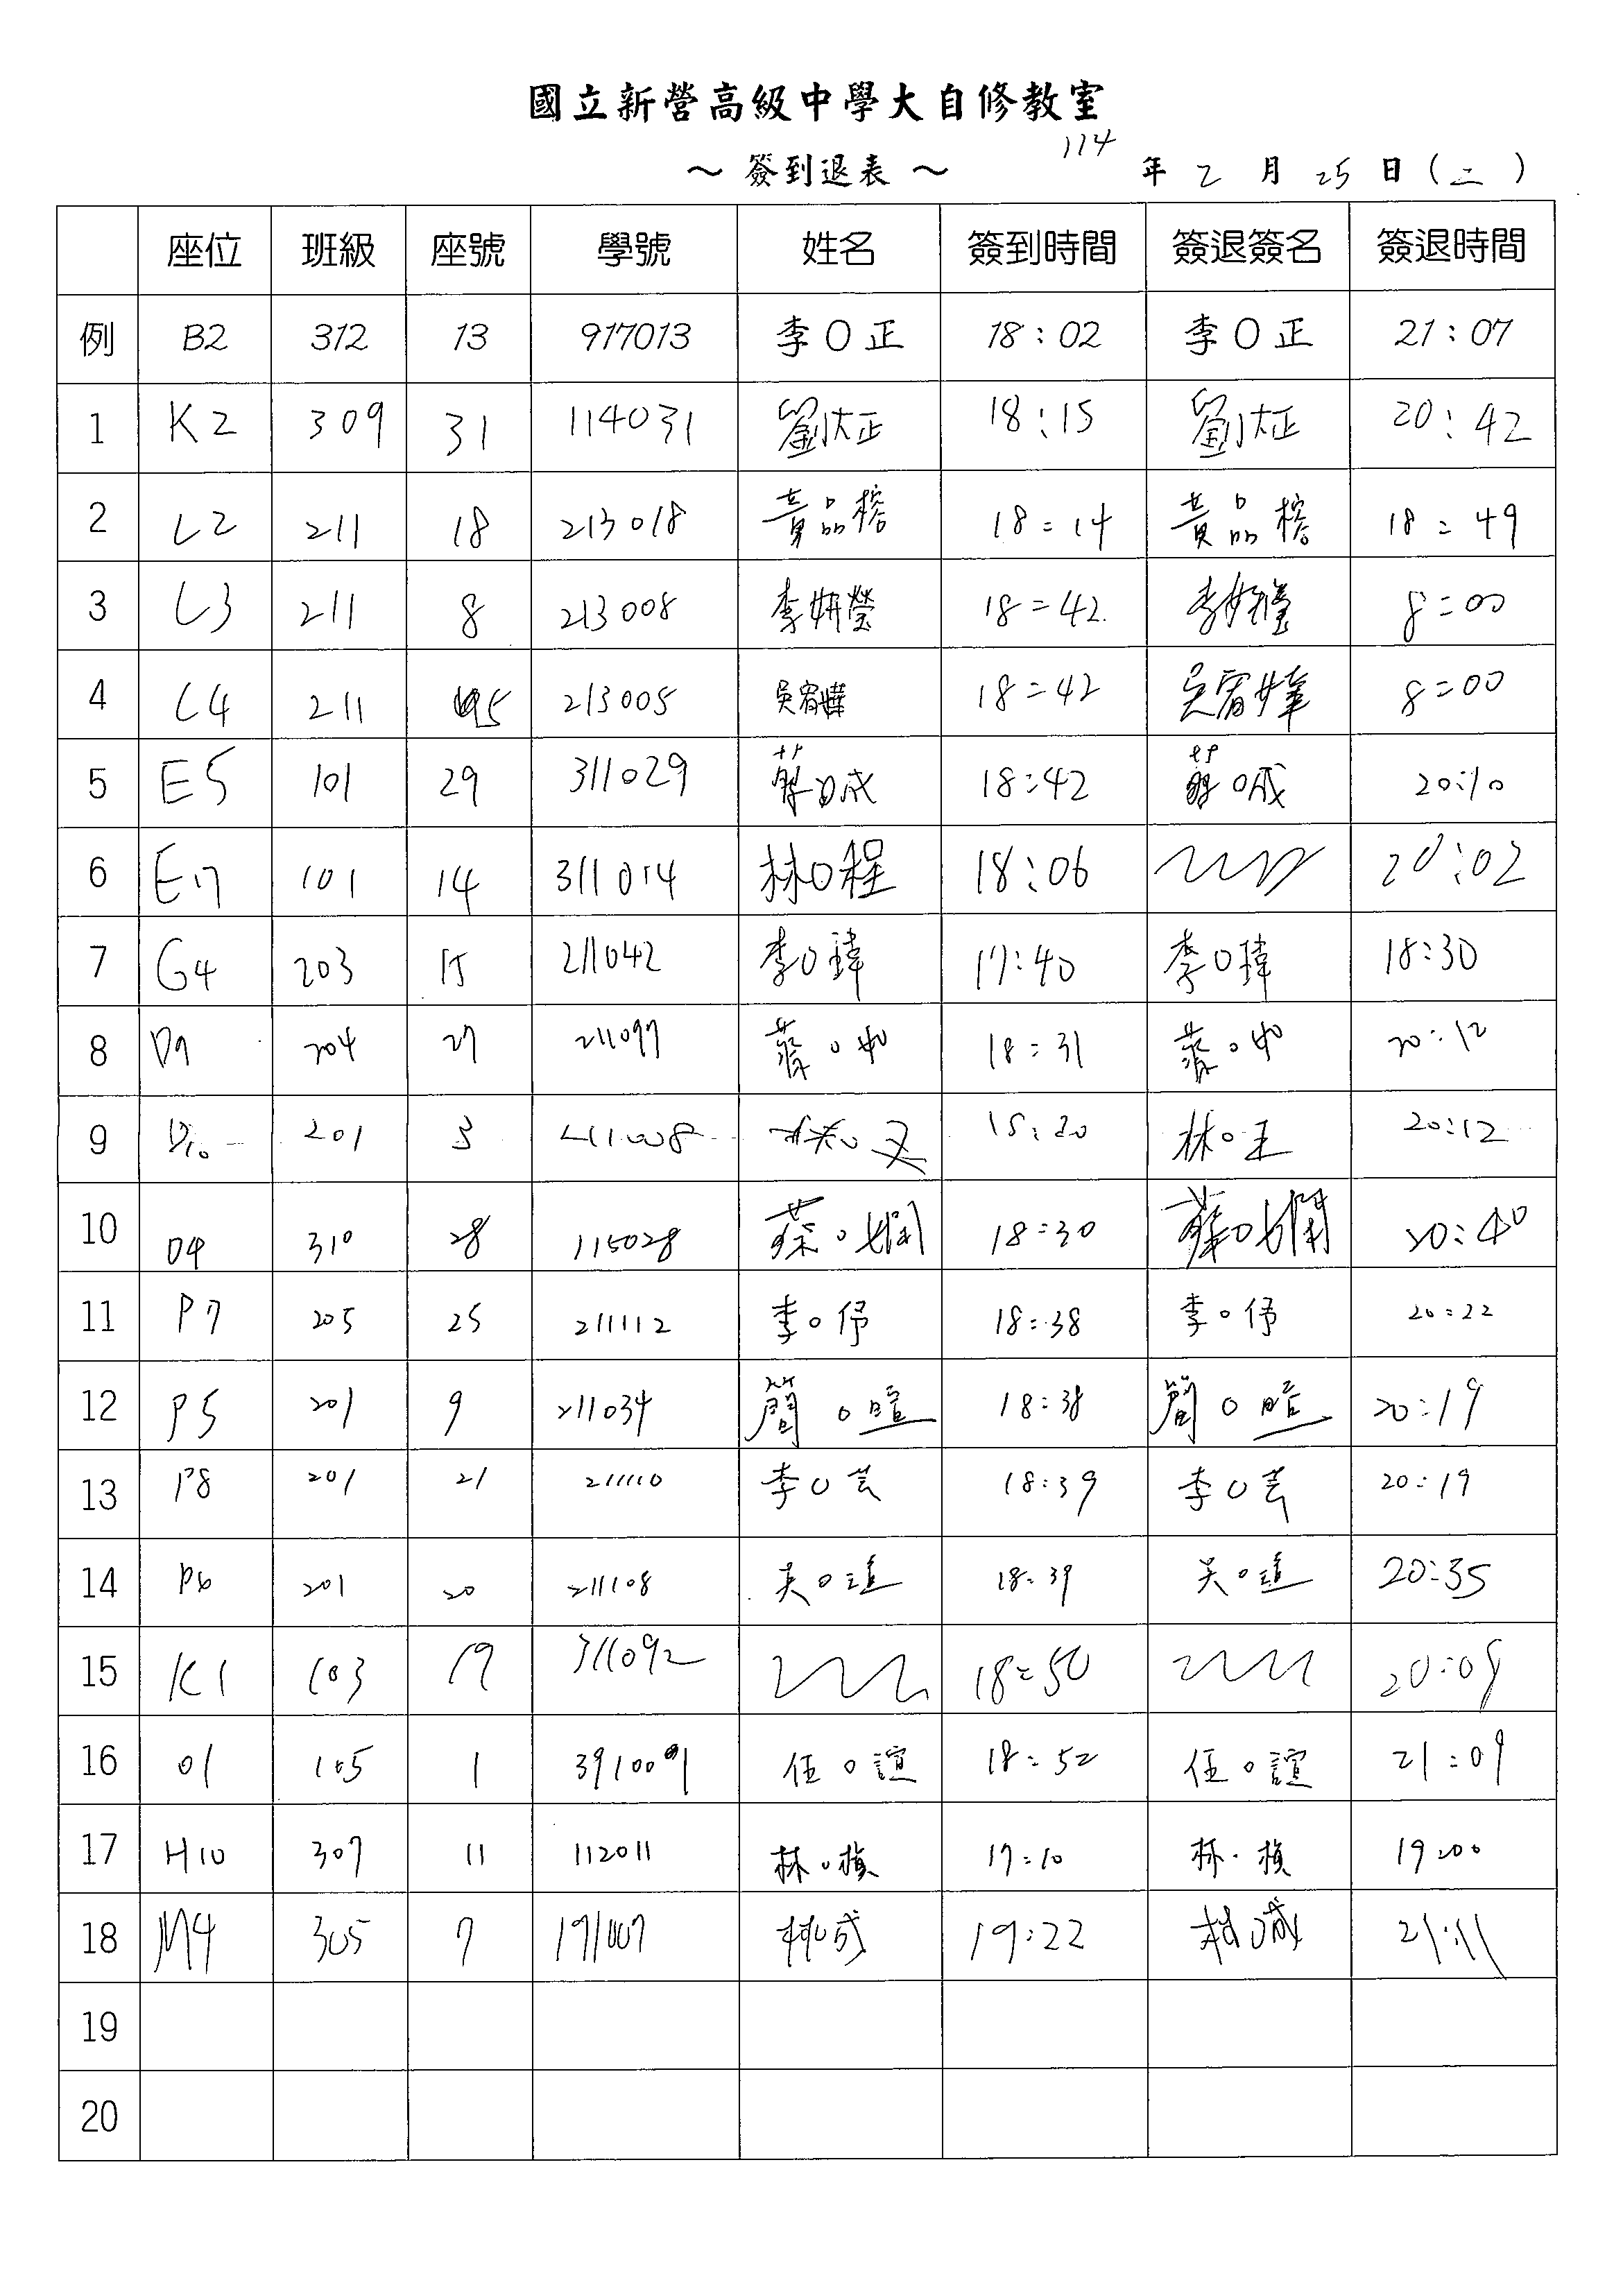 國立新營高級中學大自修教室
～ 簽到退表 ～ 114 年 2 月 25 日 (二)
座位 班級 座號 學號 姓名 簽到時間 簽退簽名 簽退時間
例 B2 312 13 917013 李O正 18:02 李O正 21:07
1 K2 309 31 114031 劉大正 18:15 劉大正 20:42
2 L2 211 18 213018 黃品榕 18=14 黃品榕 18=49
3 L3 211 8 213008 李妍瑩 18=42 李妍瑩 8=00
4 L4 211 5 213005 吳宥嬅 18=42 吳宥嬅 8=00
5 E5 101 29 311029 蔡O成 18:42 蔡O成 20:10
6 E7 101 14 311014 林O程 18:06 20:02
7 G4 203 15 211042 李O瑋 17:40 李O瑋 18:30
8 D9 204 27 211097 18:31 20:12
9 D10 201 3 林O 林O王 20:12
10 O4 310 28 115028 蔡O嫻 18:30 20:40
11 P7 205 25 211112 李O伃 18:38 李O伃 20:22
12 P5 201 9 211034 簡O暄 18:38 簡O暄 20:19
13 P8 201 21 211110 李O芸 18:39 李O芸 20:19
14 P6 201 20 211108 吳O 18:39 吳O 20:35
15 K1 103 19 311092 18=50 20:09
16 O1 105 1 任O誼 18:52 任O誼 21:09
17 H10 307 11 112011 林O楨 17:10 林O楨 19:00
18 M4 305 7 191007 林O成 19:22 21:11
19
20